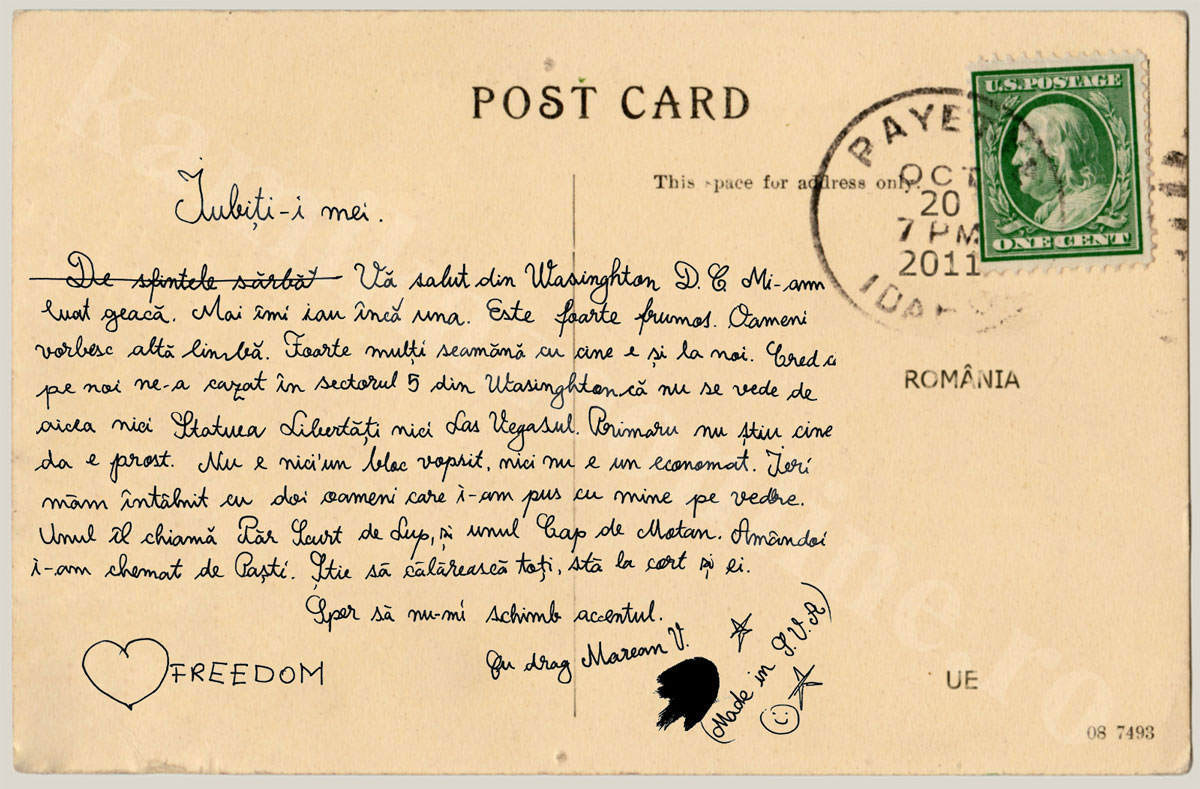 POST CARD
U.S. POSTAGE
ONE CENT
PAYE
OCT
20
7 PM
2011
IDAHO
This space for address only.
Iubiți-i mei.
De sfintele sărbă Vă salut din Wasinghton D.C. Mi-am
luat geacă. Mai îmi iau încă una. Este foarte frumos. Oameni
vorbesc altă limbă. Foarte mulți seamănă cu cine e și la noi. Cred c
pe noi ne-a cazat în sectorul 5 din Wasinghton că nu se vede de
aicea nici Statuea Libertăți nici Las Vegasul. Primaru nu știu cine
da e prost. Nu e nici'un bloc vopsit, nici nu e un economat. Ieri
măm întâbnit cu doi oameni care i-am pus cu mine pe vedere.
Unul îl chiamă Păr Scurt de Lup, și unul Cap de Motan. Amândoi
i-am chemat de Paști. Știe să călărească toți, stă la cort și ei.
Sper să nu-mi schimb accentul.
Cu drag Marean V.
(Made in S.V.A)
FREEDOM
ROMÂNIA
UE
08 7493